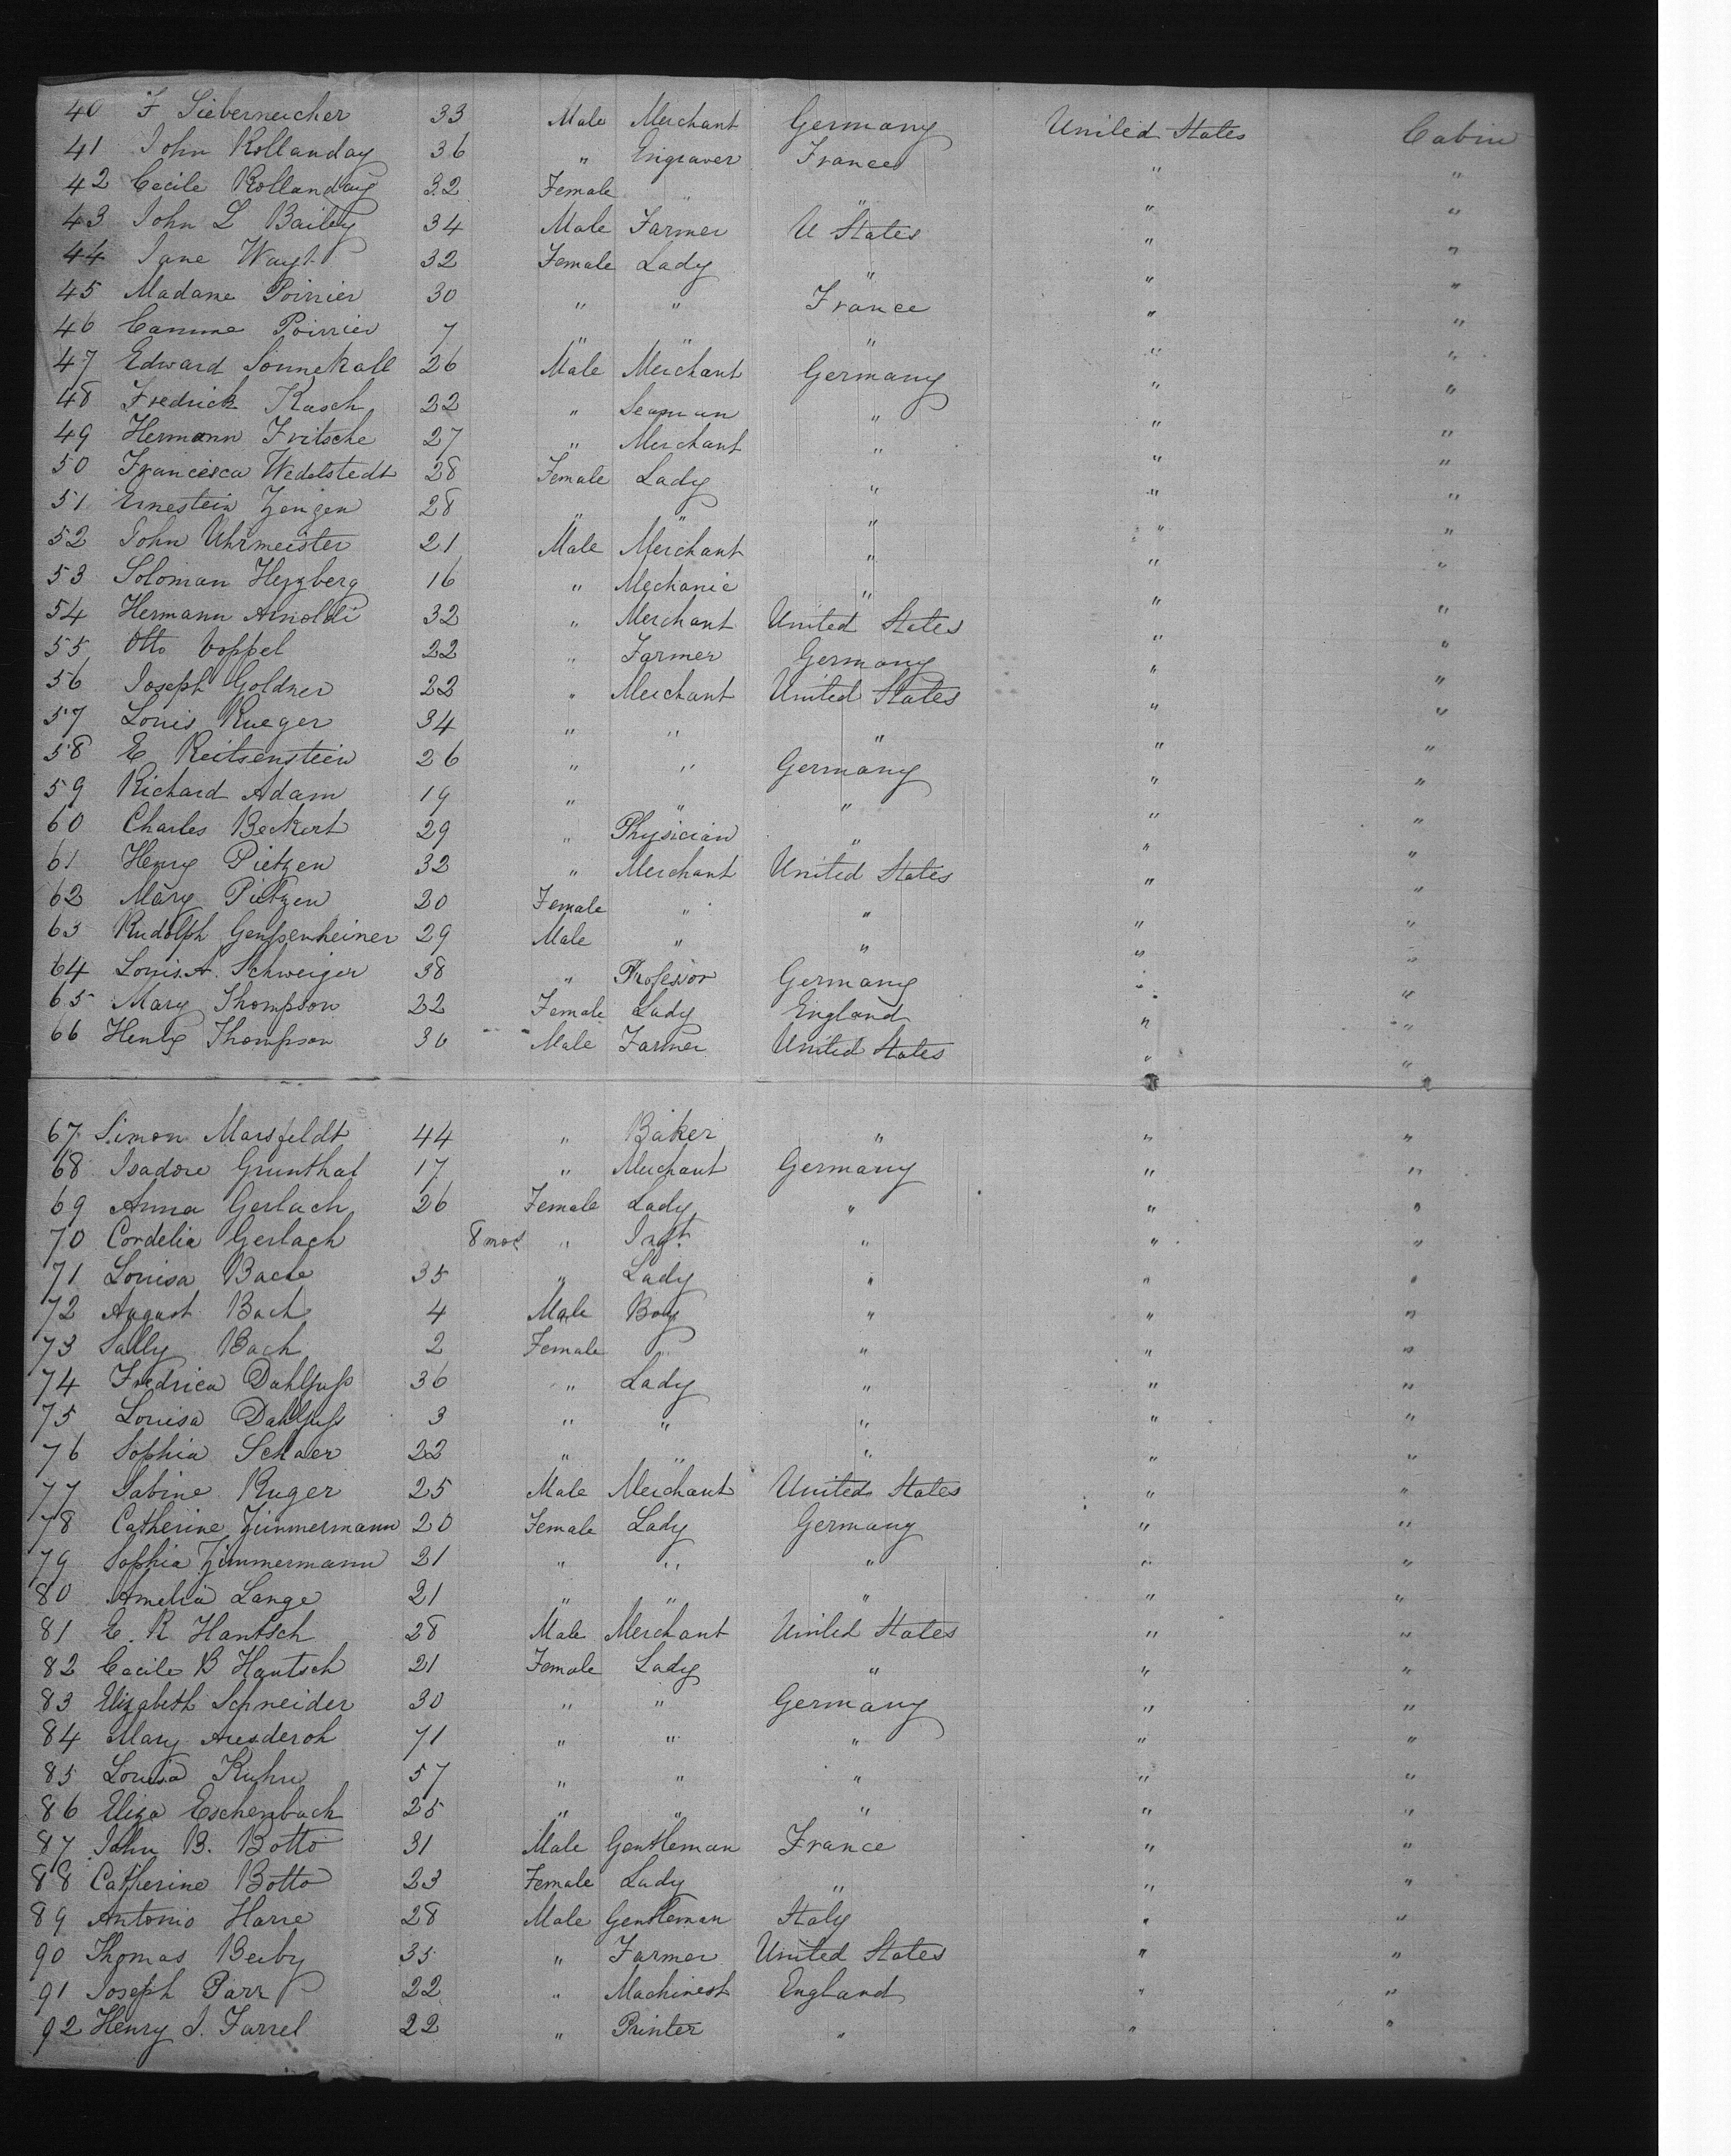 40 F Sieberneicher 33 Male Merchant Germany United States Cabin
41 John Rollanday 36 " Engraver France " "
42 Cecile Rollanday 32 Female " " " "
43 John L Bailey 34 Male Farmer U States " "
44 Jane Wayt 32 Female Lady " " "
45 Madame Poirrier 30 " " France " "
46 Camme Poirrier 7 " " " " "
47 Edward Sonnekalb 26 Male Merchant Germany " "
48 Fredrick Kasch 22 " Seaman " " "
49 Hermann Fritsche 27 " Merchant " " "
50 Francisca Wedelstedt 28 Female Lady " " "
51 Ernestein Zengen 28 " " " " "
52 John Uhrmeister 21 Male Merchant " " "
53 Soloman Herzberg 16 " Mechanic " " "
54 Hermann Arnoldi 32 " Merchant United States " "
55 Otto Voppel 22 " Farmer Germany " "
56 Joseph Goldner 22 " Merchant United States " "
57 Louis Rueger 34 " " " " "
58 E Reitsenstein 26 " " Germany " "
59 Richard Adam 19 " " " " "
60 Charles Beckert 29 " Physician " " "
61 Henry Pietzen 32 " Merchant United States " "
62 Mary Pietzen 20 Female " " " "
63 Rudolph 29 Male " " " "
64 Louis A. Schweiger 38 " Professor Germany " "
65 Mary Thompson 22 Female Lady England " "
66 Henry Thompson 36 Male Farmer United States " "
67 Simon Marsfeldt 44 " Baker " " "
68 Isadore Grunthal 17 " Merchant Germany " "
69 Anna Gerlach 26 Female Lady " " "
70 Cordelia Gerlach 8 mos " Inft. " " "
71 Louisa Bach 35 " Lady " " "
72 August Bach 4 Male Boy " " "
73 Sally Bach 2 Female " " " "
74 Fredrica Dahlguss 36 " Lady " " "
75 Louisa Dahlguss 3 " " " " "
76 Sophia Schaer 22 " " " " "
77 Sabine Ruger 25 Male Merchant United States " "
78 Catherine Zimmermann 20 Female Lady Germany " "
79 Sophia Zimmermann 21 " " " " "
80 Amelia Lange 21 " " " " "
81 E. R Hantsch 28 Male Merchant United States " "
82 Cacile B Hantsch 21 Female Lady " " "
83 Elizabeth Schneider 30 " " Germany " "
84 Mary Aresderoh 71 " " " " "
85 Louisa Kuhn 57 " " " " "
86 Eliza Eschenbach 25 " " " " "
87 John B. Botto 31 Male Gentleman France " "
88 Catherine Botto 23 Female Lady " " "
89 Antonio Harre 28 Male Gentleman Italy " "
90 Thomas Beeby 35 " Farmer United States " "
91 Joseph Parr 22 " Machinest England " "
92 Henry J. Farrel 22 " Printer " " "